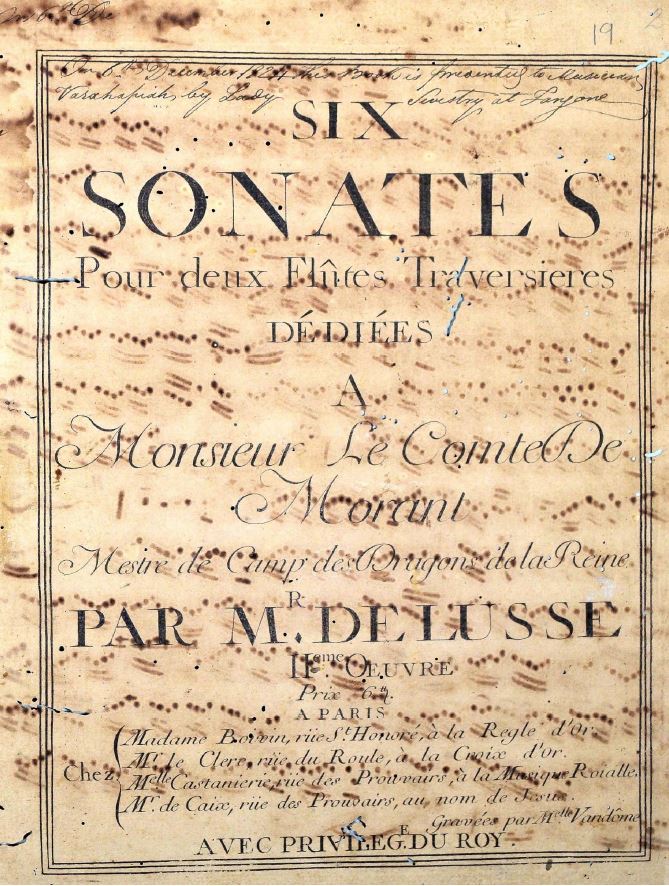 19 2
On 6th December 1824 this Book is presented to Musician
Varahapiah by Lady at Tanjore
SIX
SONATES
Pour deux Flûtes Traversieres
DÉDIÉES
A
Monsieur Le Comte De
Morant
Mestre de Camp des Dragons de la Reine
PAR M.R DE LUSSE
IIeme OEUVRE
Prix 6tt.
A PARIS
Chez Madame Boivin, rüe St. Honoré, à la Regle d'Or.
Mr. le Clerc, rüe du Roule, à la Croix d'Or.
Melle Castanierie, rue des Prouvairs, à la Musique Roialle.
Mr. de Caix, rüe des Prouvairs, au nom de Jesus.
Gravées par Melle Vandôme
AVEC PRIVILEG.E DU ROY.